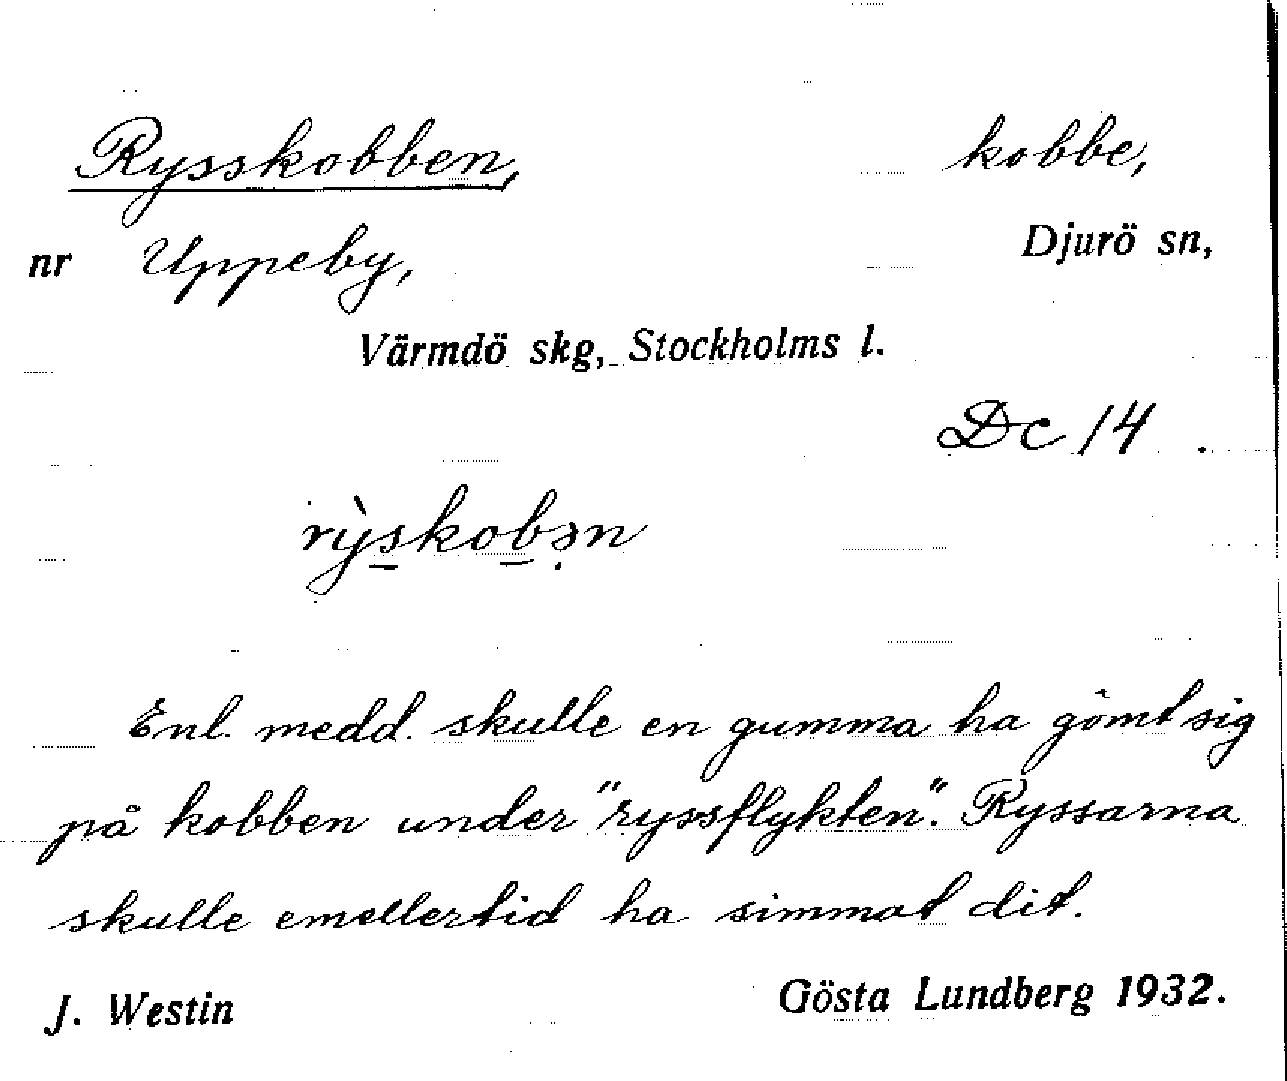 Rysskobben, kobbe,
nr Uppeby, Djurö sn,
Värmdö skg, Stockholms l.
Dc 14.
rỳs̱koḇə̣n
Enl. medd. skulle en gumma ha gömt sig
på kobben under "ryssflykten". Ryssarna
skulle emellertid ha simmat dit.
J. Westin Gösta Lundberg 1932.